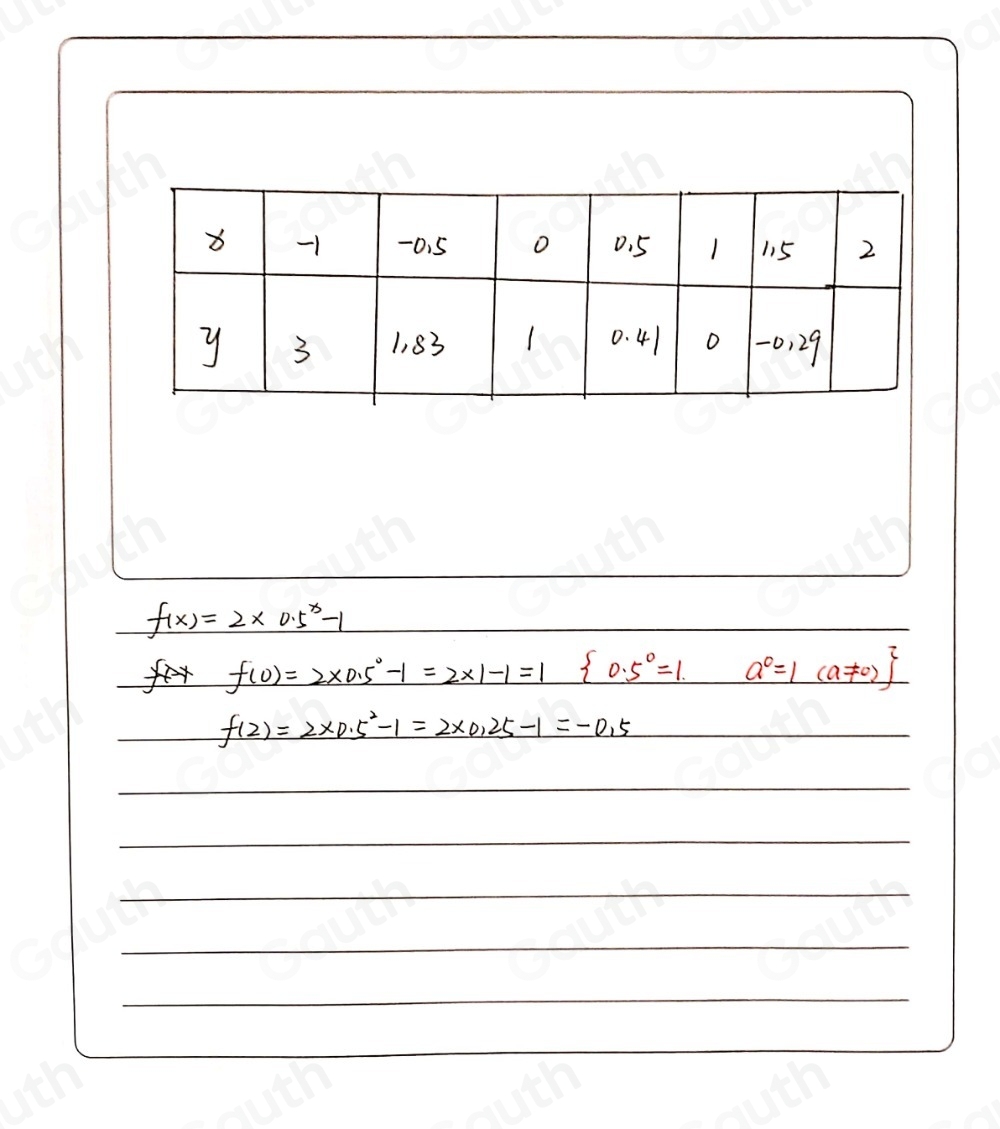 x -1 -0.5 0 0.5 1 1.5 2
y 3 1.83 1 0.41 0 -0.29
f(x) = 2 × 0.5ˣ - 1
f(0) = 2×0.5⁰ - 1 = 2×1 - 1 = 1 { 0.5⁰ = 1. a⁰ = 1 (a≠0) }
f(2) = 2×0.5² - 1 = 2×0.25 - 1 = -0.5